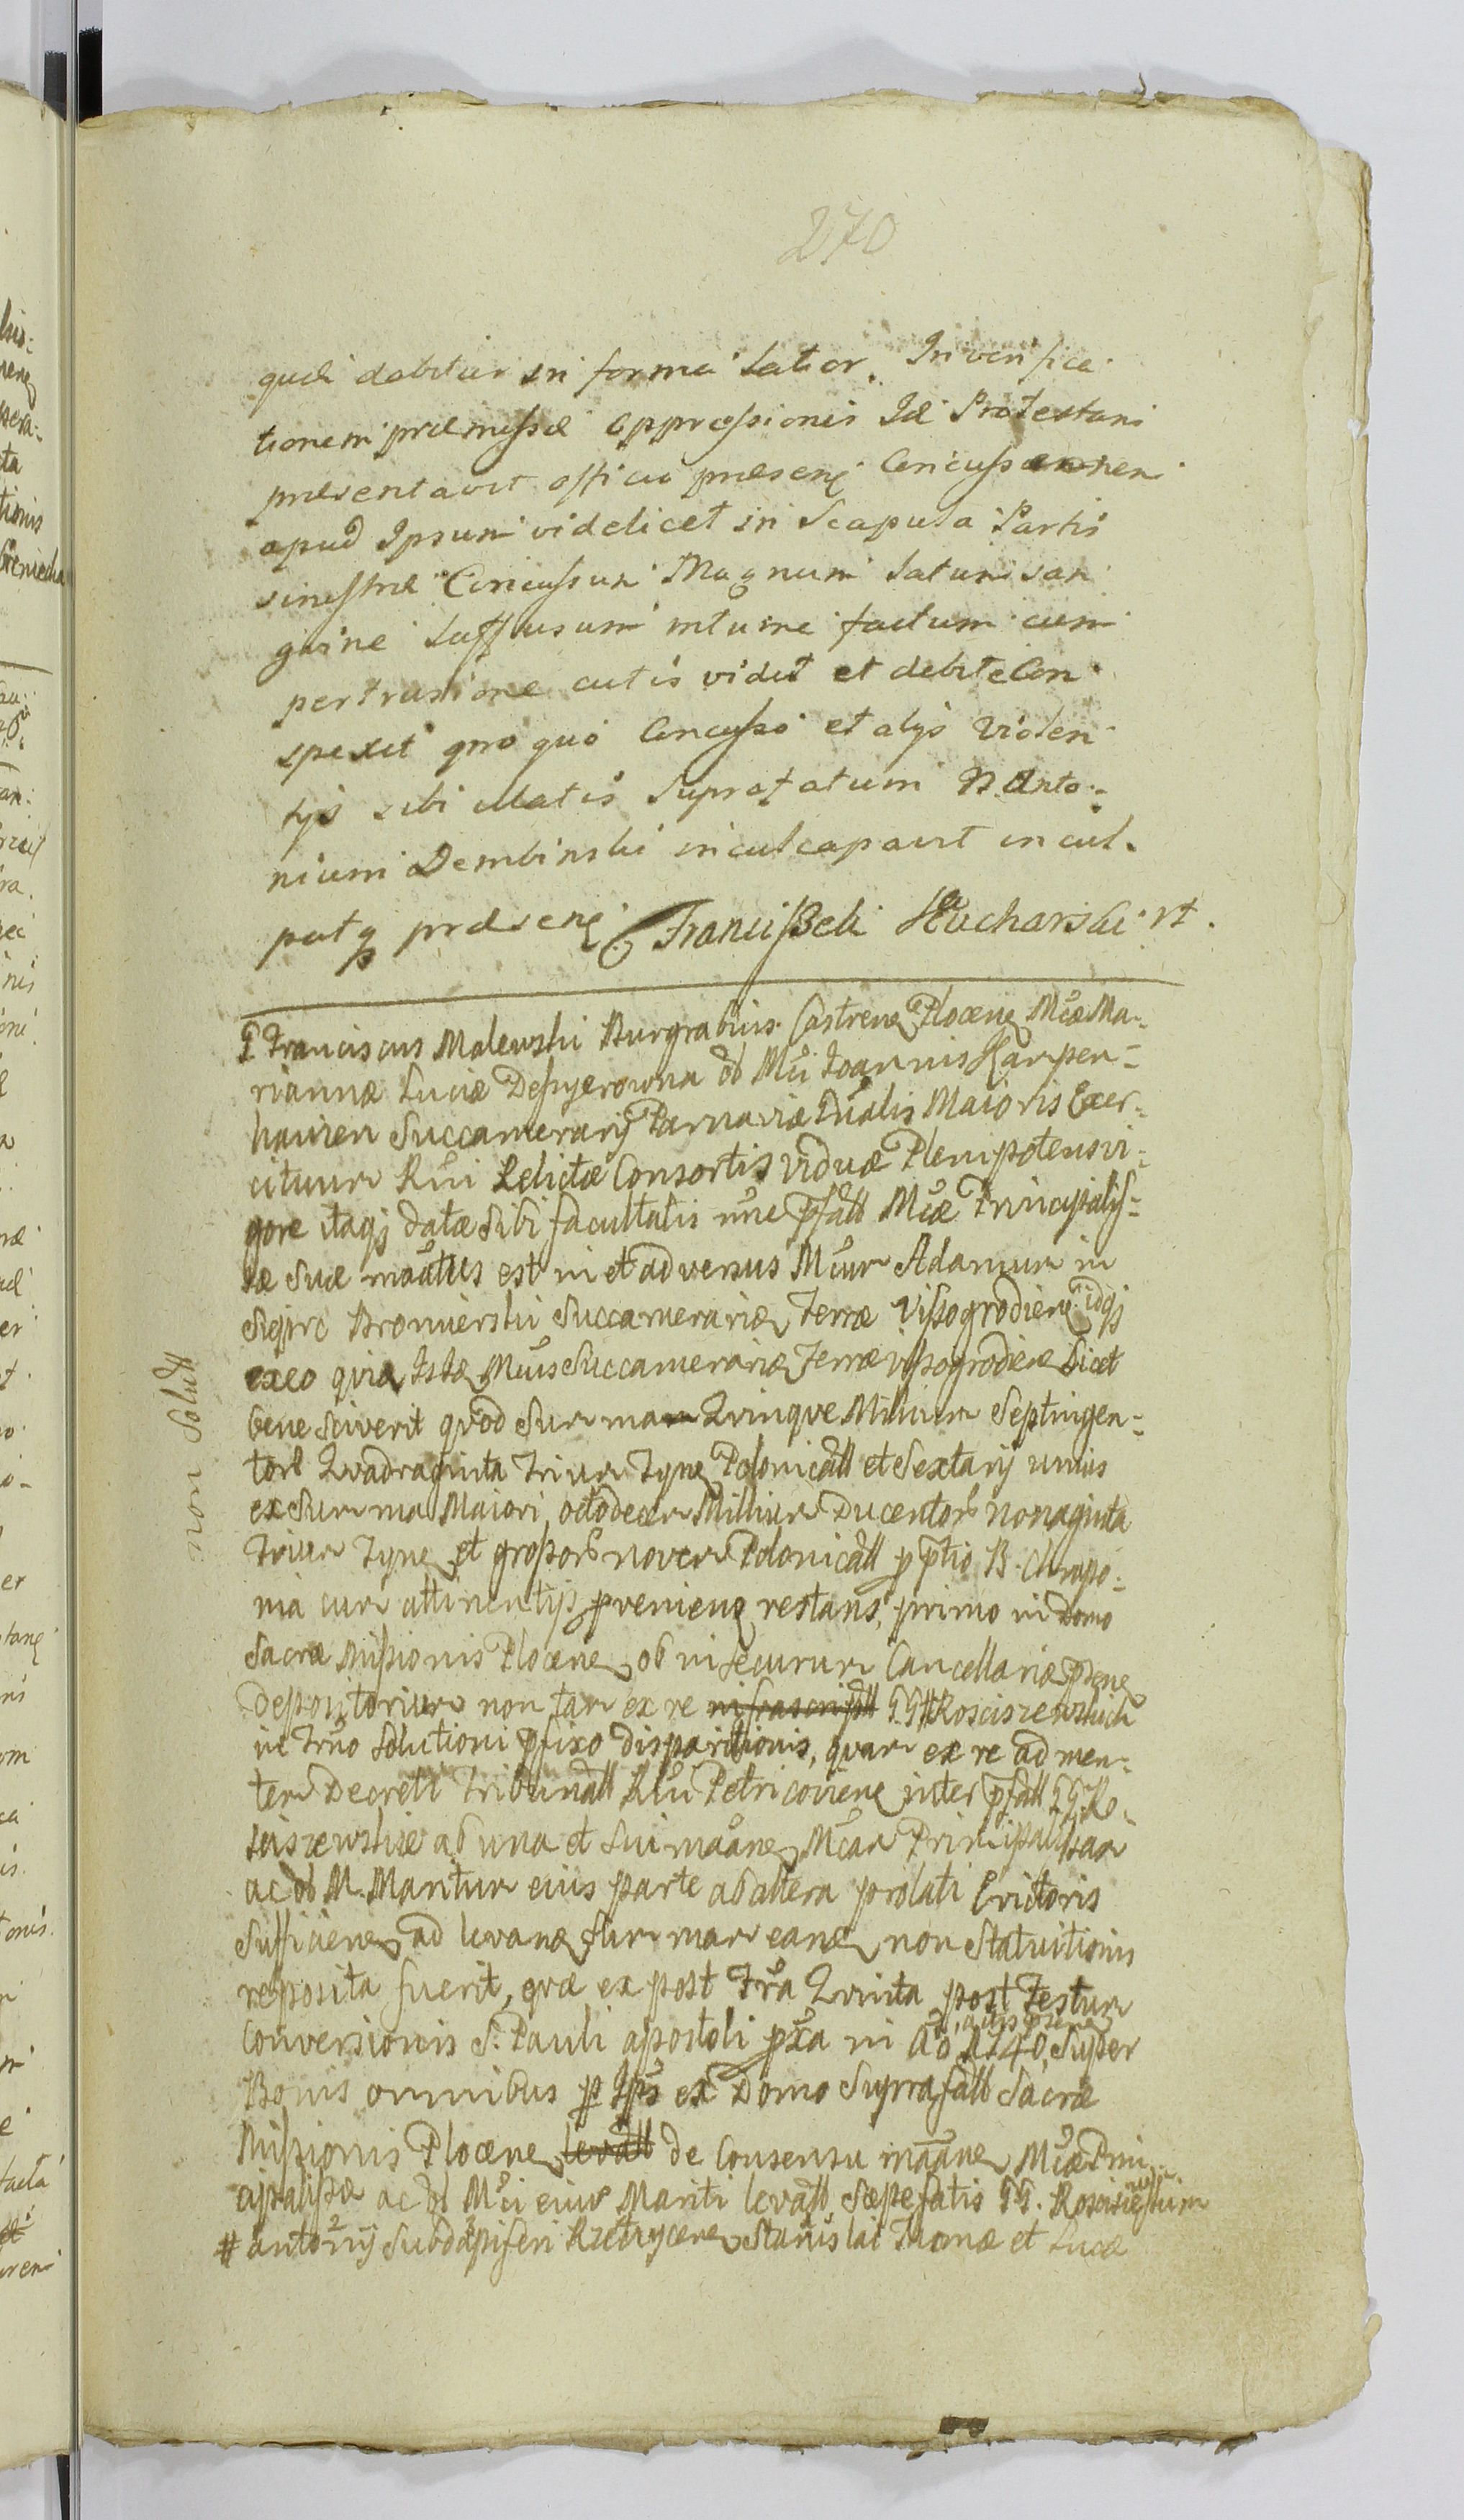 270
quoli debitur in forma latior. In verifica
tionem præmissæ oppressionis Id Protestans
præsentavit officio præsenę Concussionem
apud Ipsum videlicet in Scapula Partis
sinistræ Concussum Magnum latum san
guine suffusum intuine factum cum
pertrusione cutis vidit et debite Con
spexit pro quo Concusso et alys Violen
tys sibi illatis Suprafatum N. Anto:
nium Dembinski inculcapavit incul.
patq præsenę Franciszek Kucharski rt.
G Franciscus Malewski Burgrabius Castrenę Plocenę Mcæ Ma:
riannæ Luciæ Despperowna ol Mci Joannis Karpen=
hauzen Succamerarij Parnaviæ Dualis Maioris Exer:
cituum Rni Relictæ Consortis Viduæ Plenipotens vi:
gore itaqȝ datæ Sibi facultatis nne pfatt Mcæ Principalis=
sæ Suæ mattus est in et adversus Mcum Adamum in
Sieprc Bromierski Succamerariæ Terræ Vissogrodienę idqȝ
exeo quia Istę Mcus Succamerarię Terræ Vissogrodienę Licet
bene Sciverit quod Summam Quinque Millium Septingen=
torb Quadraginta Trium Tynę Polonicatt et Sextarij unius
ex Summa Maiori, octodecem Millium Ducentorb nonaginta
Trium Tynę et grossorb novem Polonicatt p ptio B. Chrapo:
nia cum attinentijs pvenienę restans, primo in Domo
Sacræ Missionis Plocenę ob insecurum Cancellariæ psenę
Depositorium non tam ex re infrascriptt GG Rosciszewskich
in Trno Solutioni pfixo disparitionis, quam ex re ad men:
tem Decreti Tribunatt Rni Petricoviene inter pfatt GG. Ro:
sciszewskie ab una et Sui maane Mcam Principalissam
ac ol M. Maritum eius parte ab altera prolati Evictoris
Sufficienę ad levanę Summam eanę non Statuitionis
reposita fuerit, quæ ex post Fra Quinta post Festum
Conversionis S. Pauli apostoli pxa in Ao 1740, actis psenę Super
Bonis omnibus p Ips ex Domo Suprafatt Sacræ
Missionis Plocenę levatt de Consensu maane Mcæ Prin:
cipalissæ ac ol Mci eius Mariti levatt Sæpefatis GG. Rosciszewskim
# antonij Subdapiferi Rzeczycenę Stanislai Thomæ et Lucæ
non Solutt